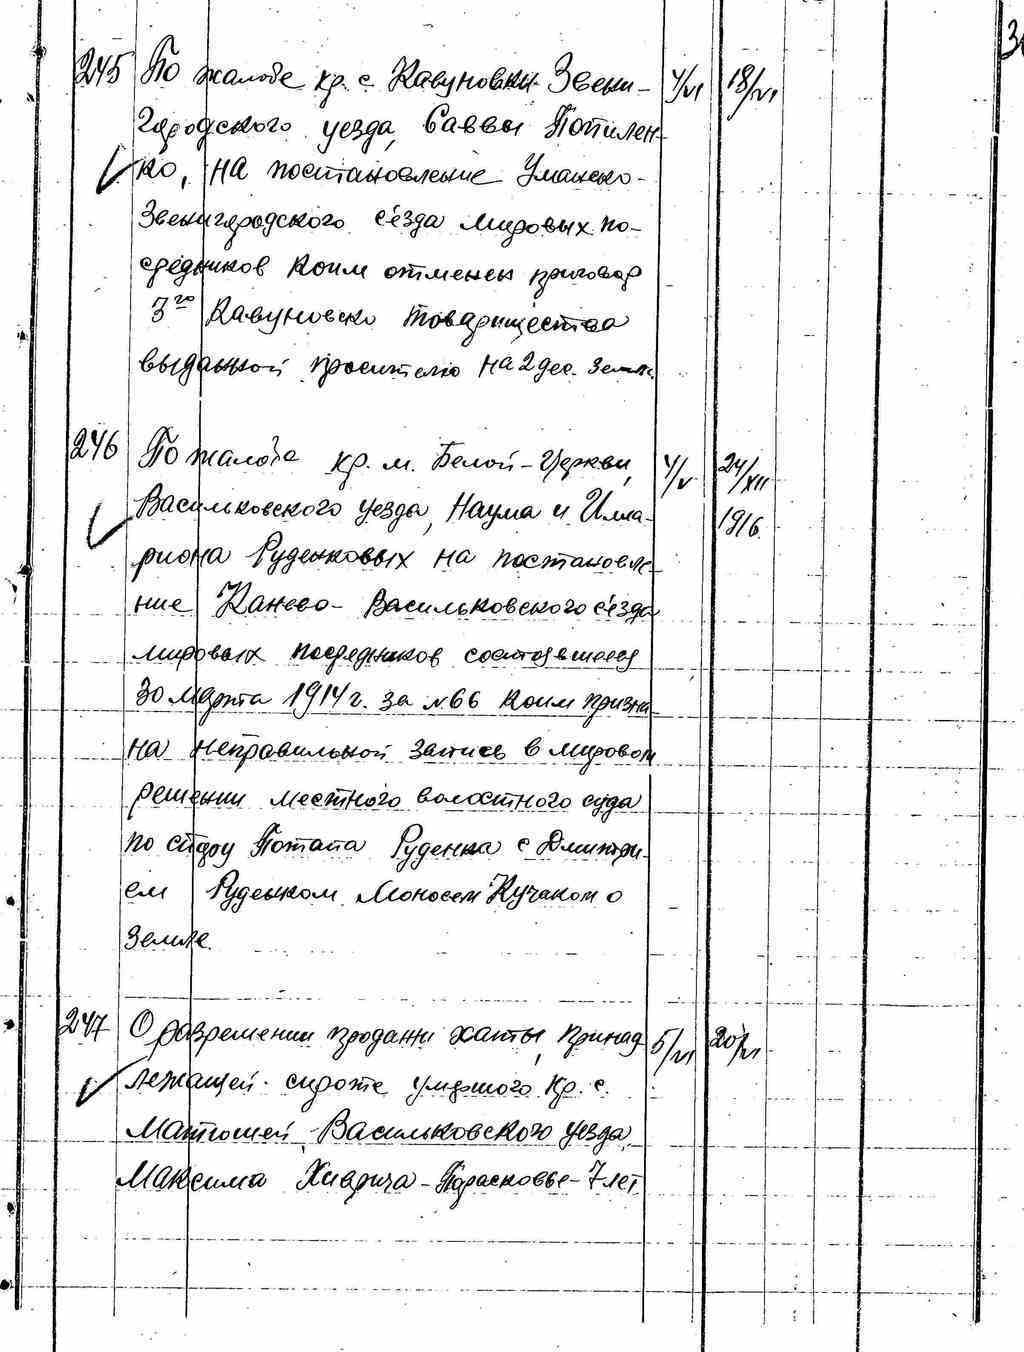 245 По жалобе кр. с. Кавуновки Звени- 4/VI 18/VI
городского уезда, Саввы Потилен-
ко, на постановление Уманско-
Звенигородского с'езда мировых по-
средников коим отменен приговор
3го Кавуновско товарищества
выданной просителю на 2 дес. земли.
246 По жалобе кр. м. Белой-Церкви, 4/V 24/XII
Васильковского уезда, Наума и Илла- 1916.
риона Руденковых на постановле-
ние Канево-Васильковского с'езда
мировых посредников состоявшееся
30 марта 1914 г. за №66 коим призна-
на неправильной запись в мировом
решении местного волостного суда
по спору Потапа Руденка с Дмитри-
ем Руденком Кучаком о
земле.
247 О разрешении продажи хаты, принад 5/VI 20/VI
лежащей сироте умершего кр. с.
Матюшей Васильковского уезда,
Максима Хиврича - Парасковье - 7 лет